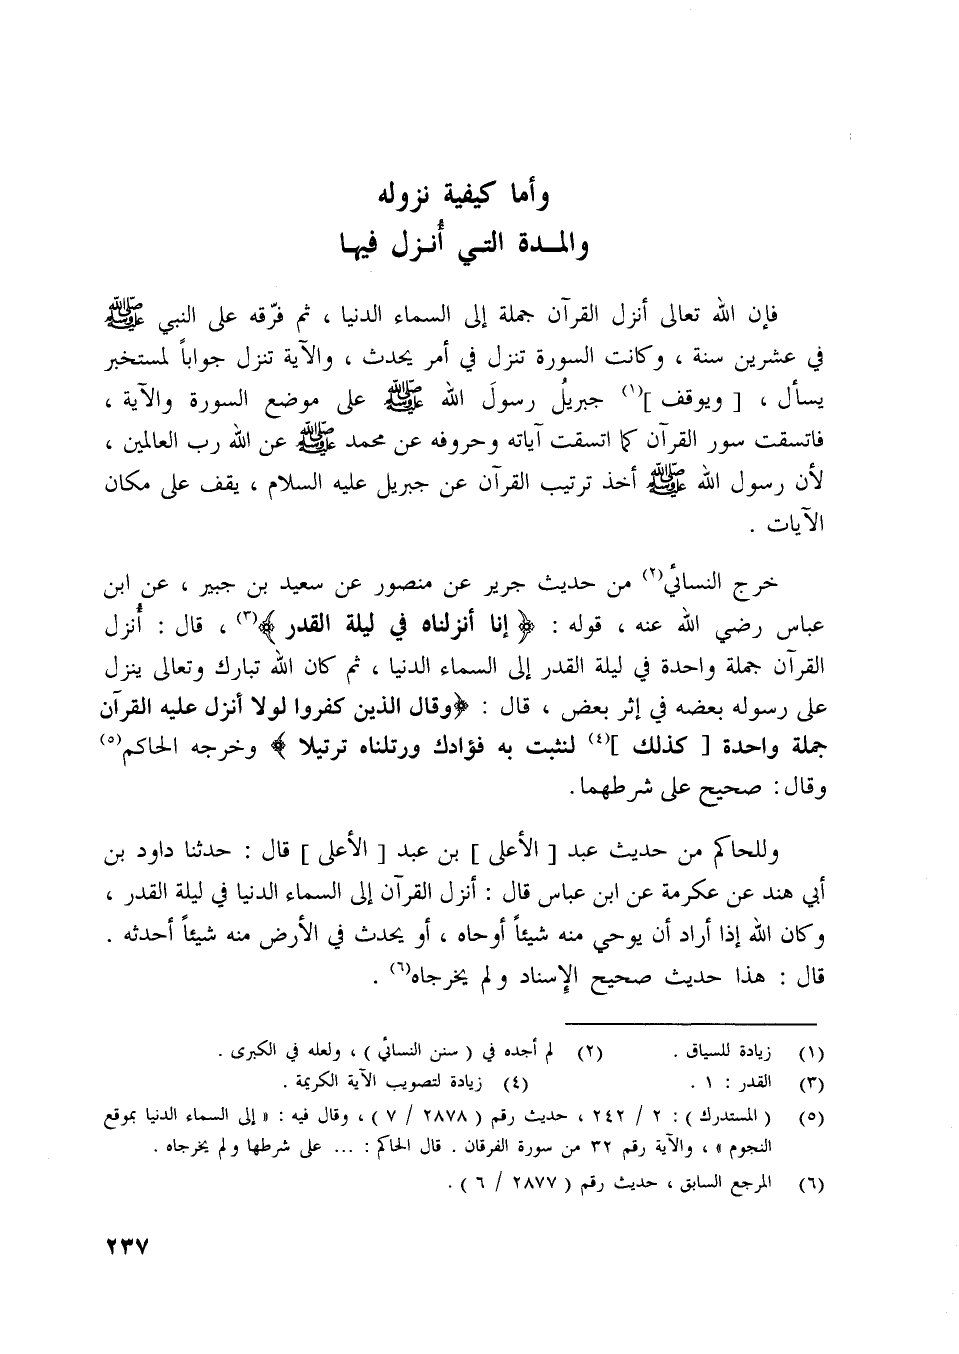 وأما كيفية نزوله
والمـدة التـي أُنـزل فيهـا
فإن الله تعالى أنزل القرآن جملة إلى السماء الدنيا ، ثم فرّقه على النبي ﷺ
في عشرين سنة ، وكانت السورة تنزل في أمر يحدث ، والآية تنزل جواباً لمستخبر
يسأل ، [ ويوقف ]⁽١⁾ جبريلُ رسولَ الله ﷺ على موضع السورة والآية ،
فاتسقت سور القرآن كما اتسقت آياته وحروفه عن محمد ﷺ عن الله رب العالمين ،
لأن رسول الله ﷺ أخذ ترتيب القرآن عن جبريل عليه السلام ، يقف على مكان
الآيات .
خرج النسائي⁽٢⁾ من حديث جرير عن منصور عن سعيد بن جبير ، عن ابن
عباس رضي الله عنه ، قوله : ﴿ إنا أنزلناه في ليلة القدر ﴾⁽٣⁾ ، قال : أُنزل
القرآن جملة واحدة في ليلة القدر إلى السماء الدنيا ، ثم كان الله تبارك وتعالى ينزل
على رسوله بعضه في إثر بعض ، قال : ﴿وقال الذين كفروا لولا أنزل عليه القرآن
جملة واحدة [ كذلك ]⁽٤⁾ لنثبت به فؤادك ورتلناه ترتيلا ﴾ وخرجه الحاكم⁽٥⁾
وقال: صحيح على شرطهما.
وللحاكم من حديث عبد [ الأعلى ] بن عبد [ الأعلى ] قال : حدثنا داود بن
أبي هند عن عكرمة عن ابن عباس قال : أنزل القرآن إلى السماء الدنيا في ليلة القدر ،
وكان الله إذا أراد أن يوحي منه شيئاً أوحاه ، أو يحدث في الأرض منه شيئاً أحدثه .
قال : هذا حديث صحيح الإسناد ولم يخرجاه⁽٦⁾ .
(١) زيادة للسياق . (٢) لم أجده في ( سنن النسائي ) ، ولعله في الكبرى .
(٣) القدر : ١ . (٤) زيادة لتصويب الآية الكريمة .
(٥) ( المستدرك ) : ٢ / ٢٤٢ ، حديث رقم ( ٢٨٧٨ / ٧ ) ، وقال فيه : « إلى السماء الدنيا بموقع
النجوم » ، والآية رقم ٣٢ من سورة الفرقان . قال الحاكم : ... على شرطها ولم يخرجاه .
(٦) المرجع السابق ، حديث رقم ( ٢٨٧٧ / ٦ ) .
٢٣٧